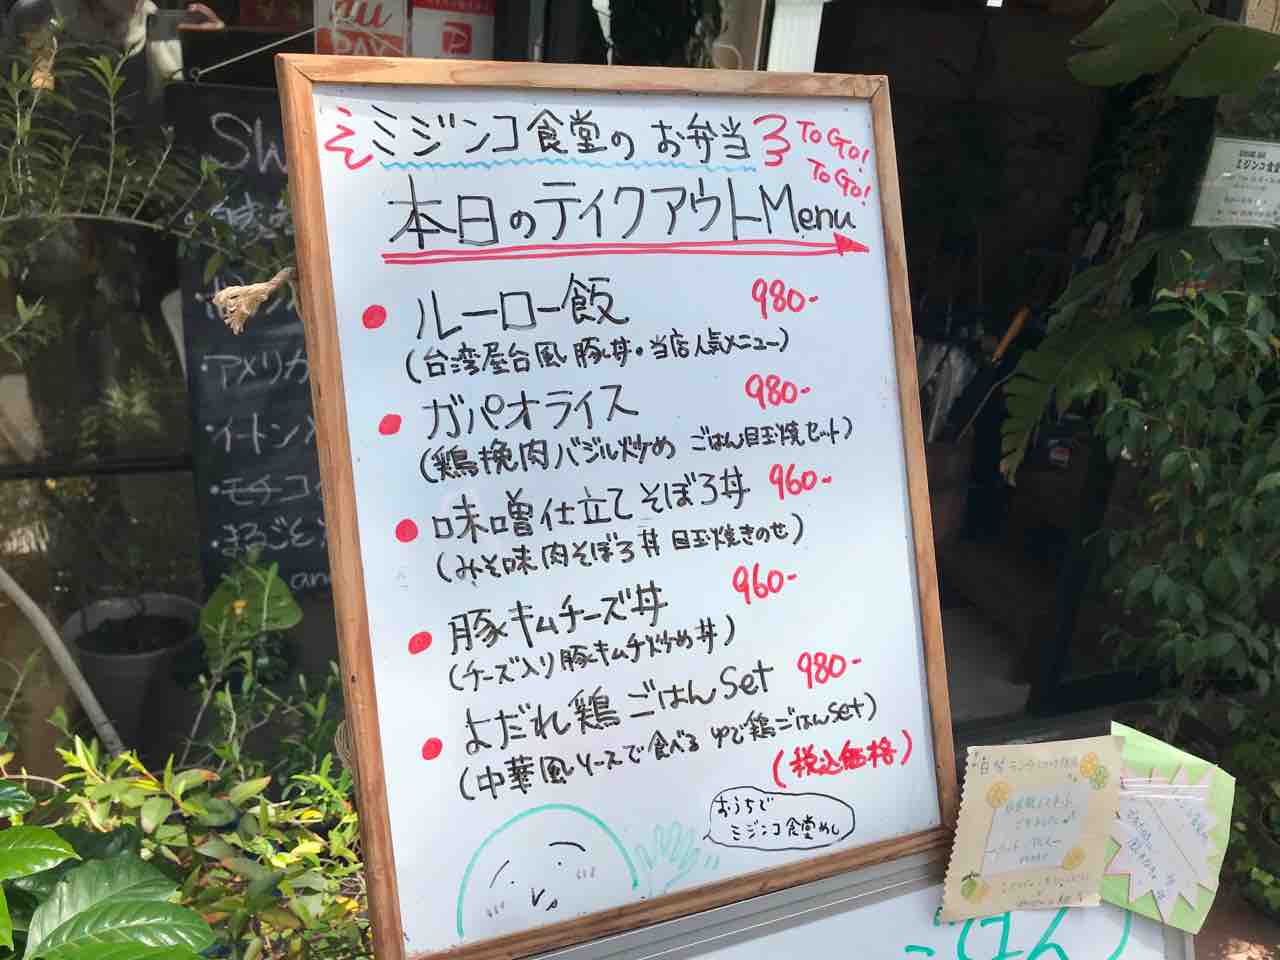 au
PAY
ミジンコ食堂のお弁当
To Go!
To Go!
本日のテイクアウトMenu
ルーロー飯 980-
(台湾屋台風 豚丼・当店人気メニュー)
ガパオライス 980-
(鶏挽肉バジル炒め ごはん目玉焼セット)
味噌仕立てそぼろ丼 960-
(みそ味肉そぼろ丼 目玉焼きのせ)
豚キムチーズ丼 960-
(チーズ入り豚キムチ炒め丼)
よだれ鶏ごはんSet 980-
(中華風ソースで食べる ゆで鶏ごはんSet)
(税込価格)
おうちで
ミジンコ食堂めし
・アメリカ
・イートン
・モチコ
・まるごと
ミジンコ食堂
ごはん